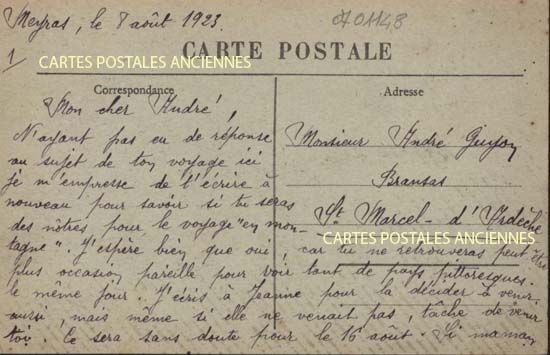 Meyras, le 8 août 1923.
701148
1
CARTE POSTALE
CARTES POSTALES ANCIENNES
Correspondance
Adresse
Mon cher André,
N'ayant pas eu de réponse
au sujet de ton voyage ici
je m'empresse de t'écrire à
nouveau pour savoir si tu seras
des nôtres pour le voyage "en mon-
tagne". J'espère bien que oui, car tu ne retrouveras peut être
plus occasion pareille pour voir tant de pays pittoresques.
le même jour. J'écris à Jeanne pour la décider à venir
aussi, mais même si elle ne venait pas, tâche de venir
toi. Ce sera sans doute pour le 16 août. Si maman
Monsieur André Guyon
Bransas
St Marcel-d'Ardèche
CARTES POSTALES ANCIENNES